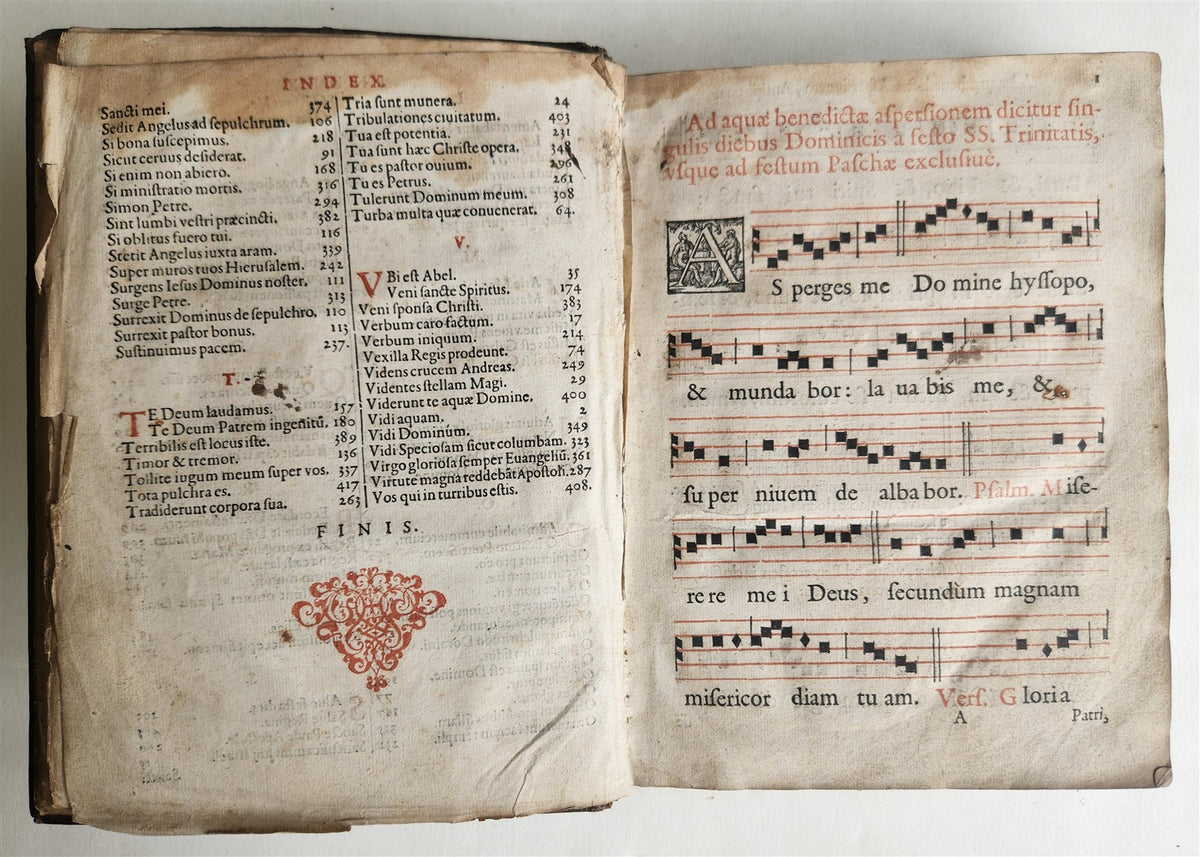 INDEX
Sancti mei. 374
Sedit Angelus ad sepulchrum. 106
Si bona suscepimus. 218
Sicut ceruus desiderat. 91
Si enim non abiero. 168
Si ministratio mortis. 316
Simon Petre. 294
Sint lumbi vestri præcincti. 382
Si oblitus fuero tui. 116
Stetit Angelus iuxta aram. 339
Super muros tuos Hierusalem. 242
Surgens Iesus Dominus noster. 111
Surge Petre. 313
Surrexit Dominus de sepulchro. 110
Surrexit pastor bonus. 113
Sustinuimus pacem. 237.
T.
TE Deum laudamus. 157
Te Deum Patrem ingenitū. 180
Terribilis est locus iste. 389
Timor & tremor. 136
Tollite iugum meum super vos. 337
Tota pulchra es. 417
Tradiderunt corpora sua. 263
Tria sunt munera. 24
Tribulationes ciuitatum. 403
Tua est potentia. 231
Tua sunt hæc Christe opera. 348
Tu es pastor ouium. 296
Tu es Petrus. 261
Tulerunt Dominum meum. 308
Turba multa quæ conuenerat. 64.
V.
VBi est Abel. 35
Veni sancte Spiritus. 174
Veni sponsa Christi. 383
Verbum caro factum. 17
Verbum iniquum. 214
Vexilla Regis prodeunt. 74
Videns crucem Andreas. 249
Videntes stellam Magi. 29
Viderunt te aquæ Domine. 400
Vidi aquam. 2
Vidi Dominum. 349
Vidi Speciosam sicut columbam. 323
Virgo gloriosa semper Euangeliū. 361
Virtute magna reddebāt Apostoli. 287
Vos qui in turribus estis. 408.
FINIS.
1
Ad aquæ benedictæ aspersionem dicitur sin-
gulis diebus Dominicis à festo SS. Trinitatis,
vsque ad festum Paschæ exclusiuè.
AS perges me Do mine hyssopo,
& munda bor: la ua bis me, &
su per niuem de alba bor. Psalm. Mise-
re re me i Deus, secundùm magnam
misericor diam tu am. Vers. Gloria
A Patri,